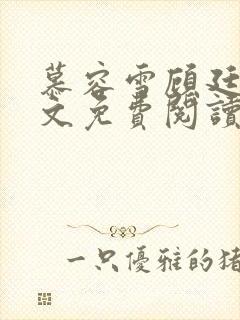 慕容雪顧廷
文免費閱讀
一只優雅的猪